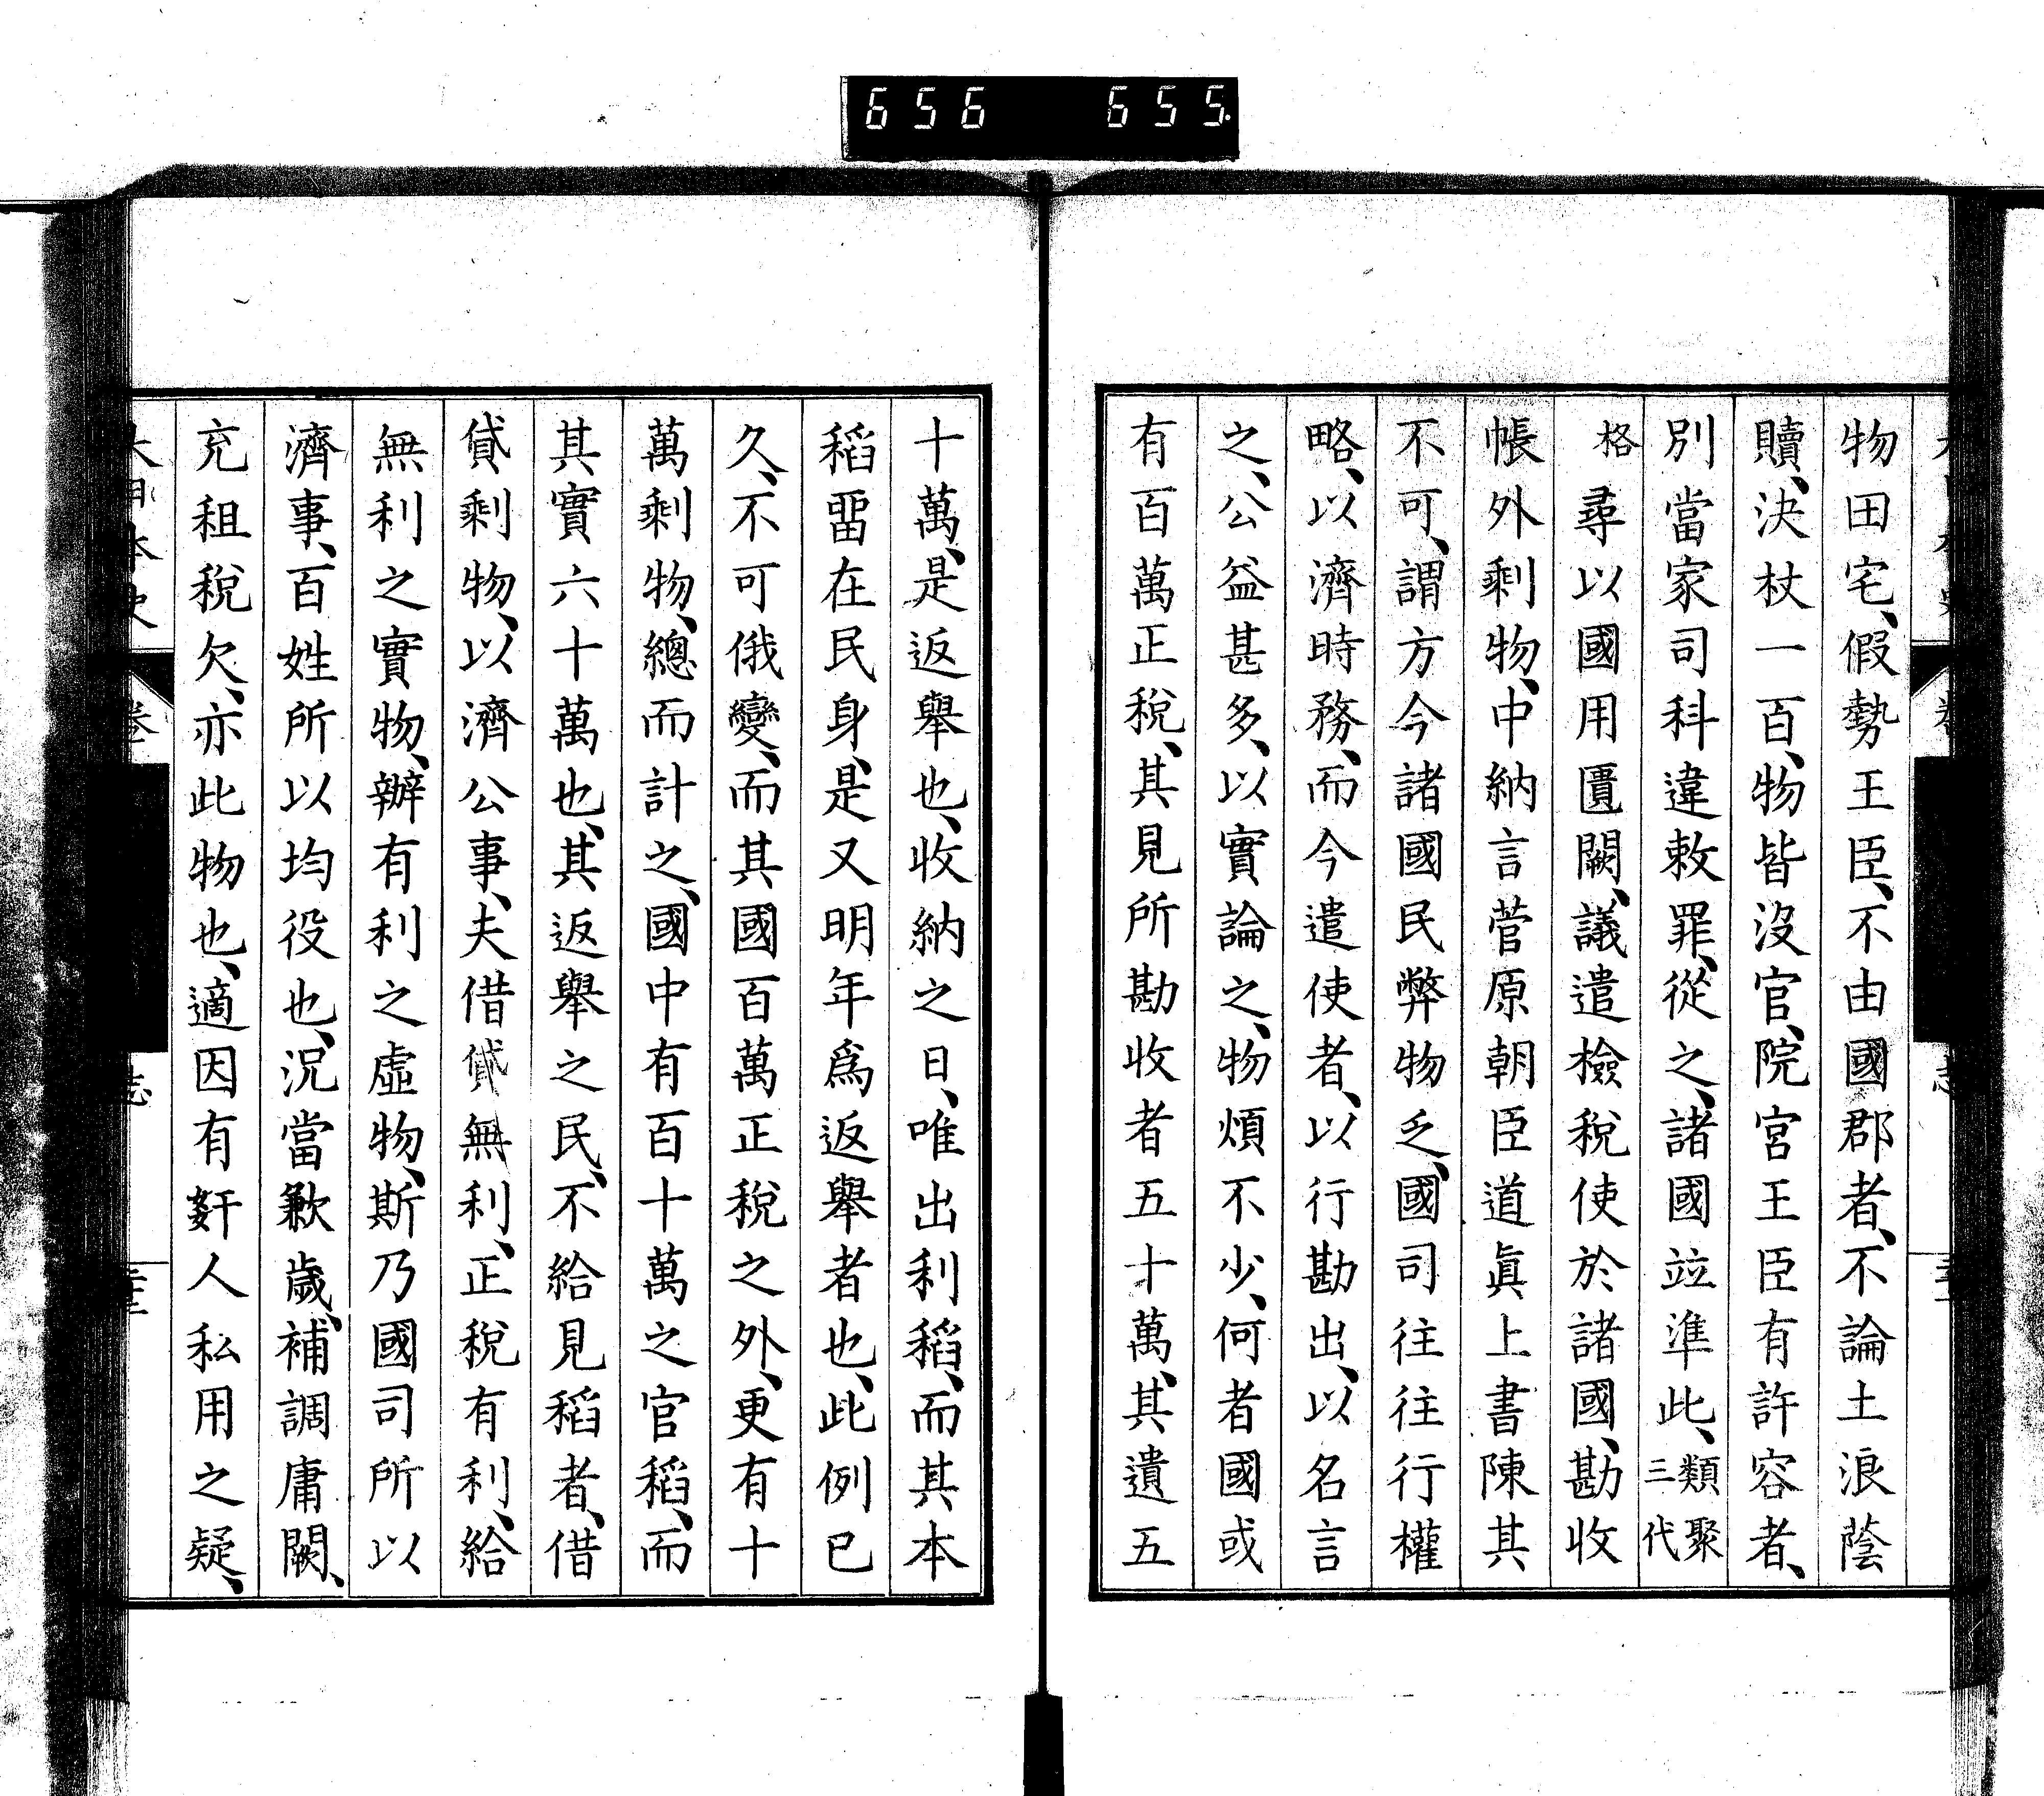 656 655
物田宅、假勢王臣、不由國郡者、不論土浪蔭
贖、決杖一百、物皆沒官、院宮王臣有許容者、
別當家司科違敕罪、從之、諸國竝準此、類聚三代
格尋以國用匱闕、議遣檢稅使於諸國、勘收
帳外剩物、中納言菅原朝臣道眞上書陳其
不可、謂方今諸國民弊物乏、國司往往行權
略、以濟時務、而今遣使者、以行勘出、以名言
之、公益甚多、以實論之、物煩不少、何者國或
有百萬正稅、其見所勘收者五十萬、其遺五
十萬、是返舉也、收納之日、唯出利稻、而其本
稻畱在民身、是又明年爲返舉者也、此例已
久、不可俄變、而其國百萬正稅之外、更有十
萬剩物、總而計之、國中有百十萬之官稻、而
其實六十萬也、其返舉之民、不給見稻者、借
貸剩物、以濟公事、夫借貸無利、正稅有利、給
無利之實物、辦有利之虛物、斯乃國司所以
濟事、百姓所以均役也、況當歉歲、補調庸闕、
充租稅欠、亦此物也、適因有姧人私用之疑、